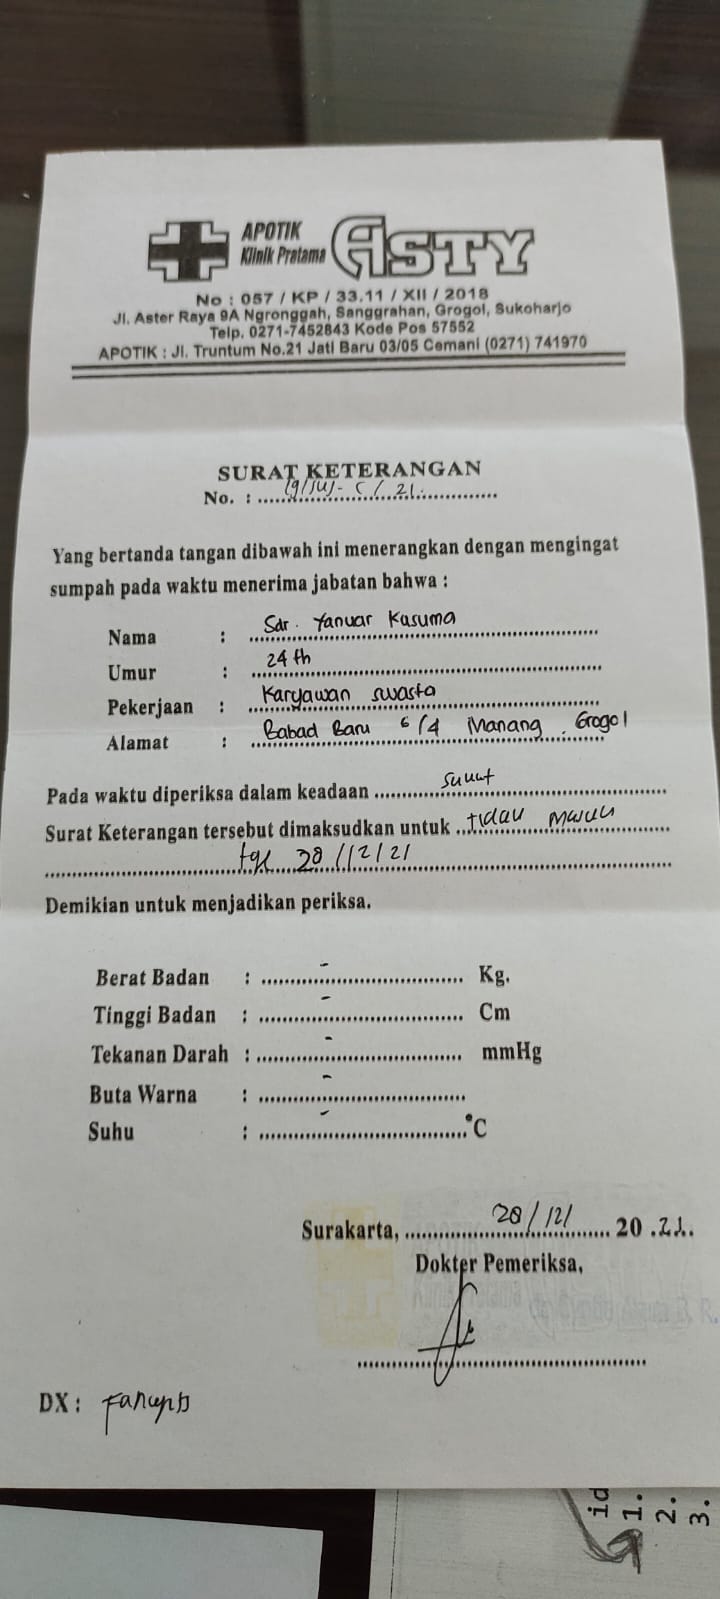 APOTIK
Klinik Pratama
ASTY
No : 057 / KP / 33.11 / XII / 2018
Jl. Aster Raya 9A Ngronggah, Sanggrahan, Grogol, Sukoharjo
Telp. 0271-7452843 Kode Pos 57552
APOTIK : Jl. Truntum No.21 Jati Baru 03/05 Cemani (0271) 741970
SURAT KETERANGAN
No. :
Yang bertanda tangan dibawah ini menerangkan dengan mengingat
sumpah pada waktu menerima jabatan bahwa :
Nama : Sdr. Yanuar Kasuma
Umur : 24 th
Pekerjaan : Karyawan swasta
Alamat : Babad Baru 6/4 Manang, Grogol
Pada waktu diperiksa dalam keadaan
Surat Keterangan tersebut dimaksudkan untuk tidau
tgl 20/12/21
Demikian untuk menjadikan periksa.
Berat Badan : - Kg.
Tinggi Badan : - Cm
Tekanan Darah : - mmHg
Buta Warna : -
Suhu : - °C
Surakarta, 20/12/ 20.21.
Dokter Pemeriksa,
DX :
id
1.
2.
3.